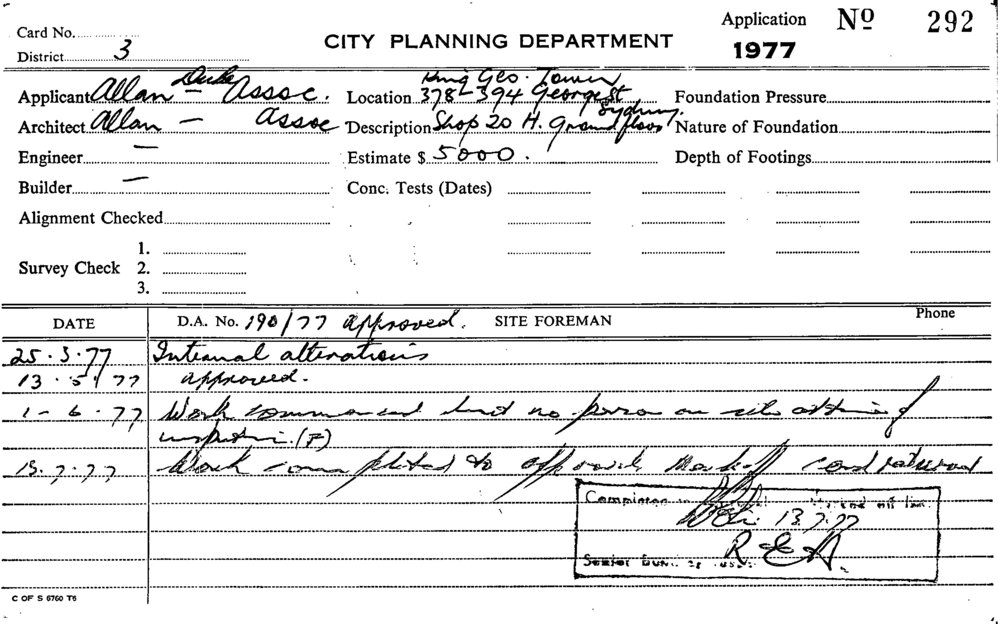 Card No.
District 3
CITY PLANNING DEPARTMENT
Application Nº 292
1977
Applicant Allan Duke Assoc.
Architect Allan — Assoc
Engineer —
Builder —
Alignment Checked
Survey Check 1.
2.
3.
King Geo. Tower
Location 378-394 George St
Sydney.
Description Shop 20 H. Ground floor
Estimate $ 5000.
Conc. Tests (Dates)
Foundation Pressure
Nature of Foundation
Depth of Footings
DATE D.A. No. 190/77 approved. SITE FOREMAN Phone
25.3.77 Internal alterations
13.5.77 approved.
1-6.77 Work commenced but no person on site at time of
inspection. (F)
13.7.77 Work completed to approved
13.7.77
R E A
Senior
C OF S 6760 T6